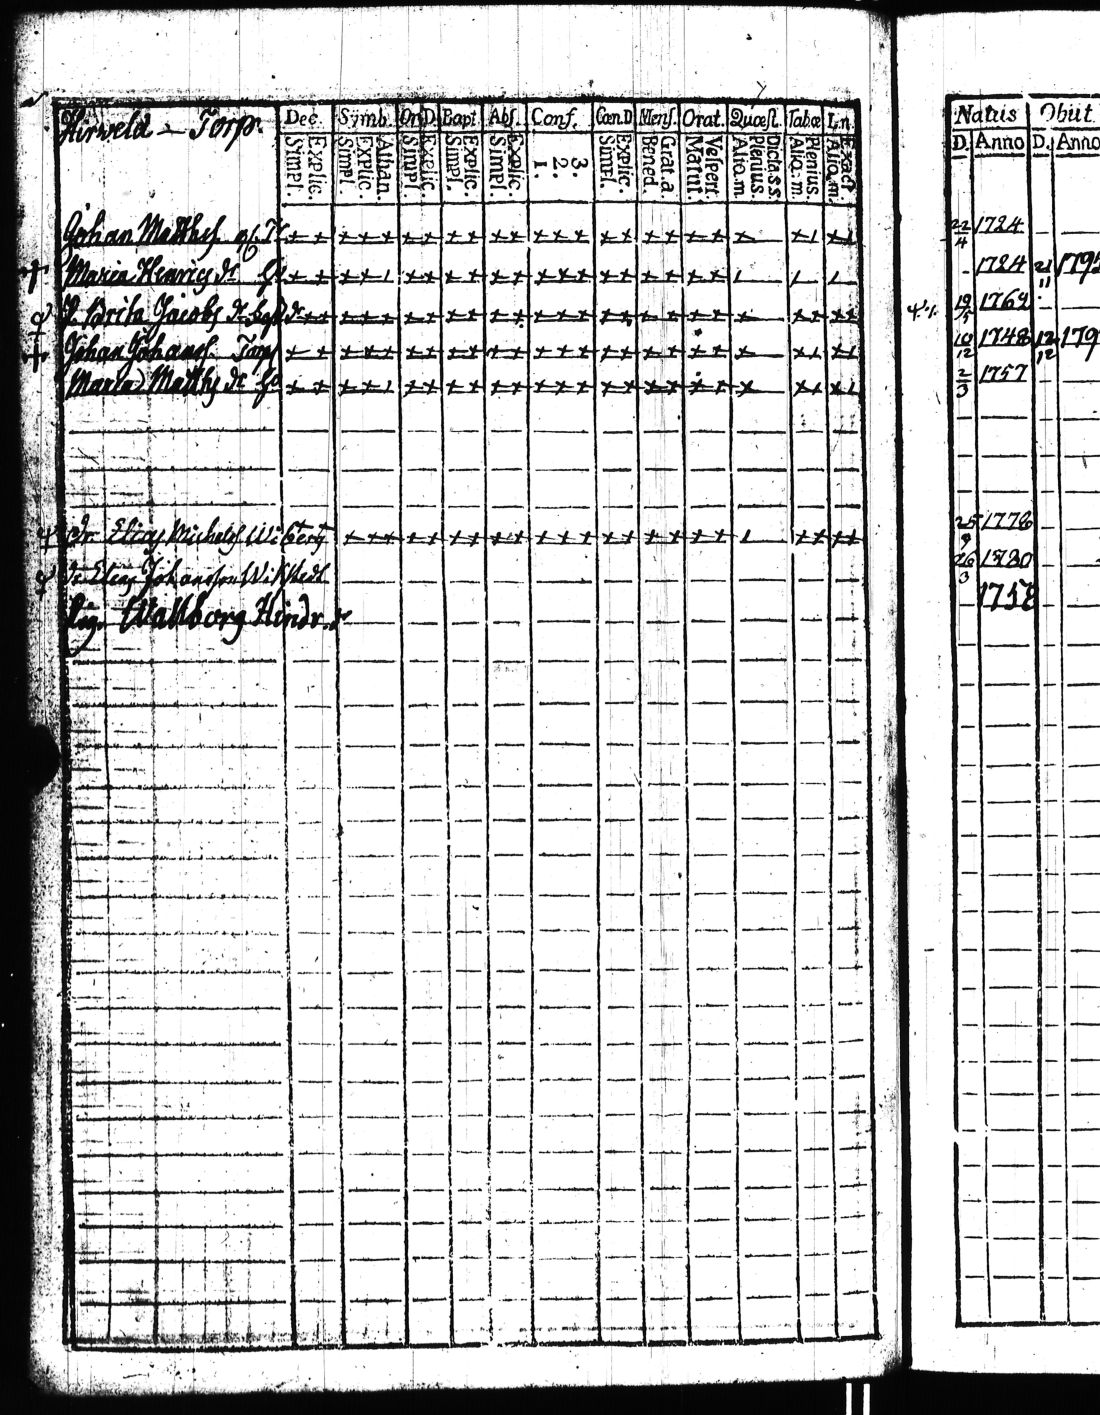 Hirveld - Torp. Dec. Symb. Or.D. Bapt. Abs. Conf. Cœn.D Mens. Orat. Quæst. Tabæ L.n. Natus Obiit
Explic. Simpl. Athan. Explic. Simpl. Explic. Simpl. Explic. Simpl. Explic. Simpl. 3. 2. 1. Explic. Simpl. Grat.a. Bened. Vespert. Matut. Dicta.s.s. Plenius. Aliq.m Plenius. Aliq.m Exact Aliq.m. D. Anno D. Anno
Johan Matthss 22/4 1724
Maria Henrics dr 1724 21/11 179
Brita Jacobs dr 19/5 1762
Johan Johanss Torp 10/12 1748 12/12 179
Maria Matths dr 2/3 1757
Elias Michelss Wiberg 25/9 1778
Elias Johansson Wikstedt 26/3 1780
Pig. Wallborg Hindr. dr 1758